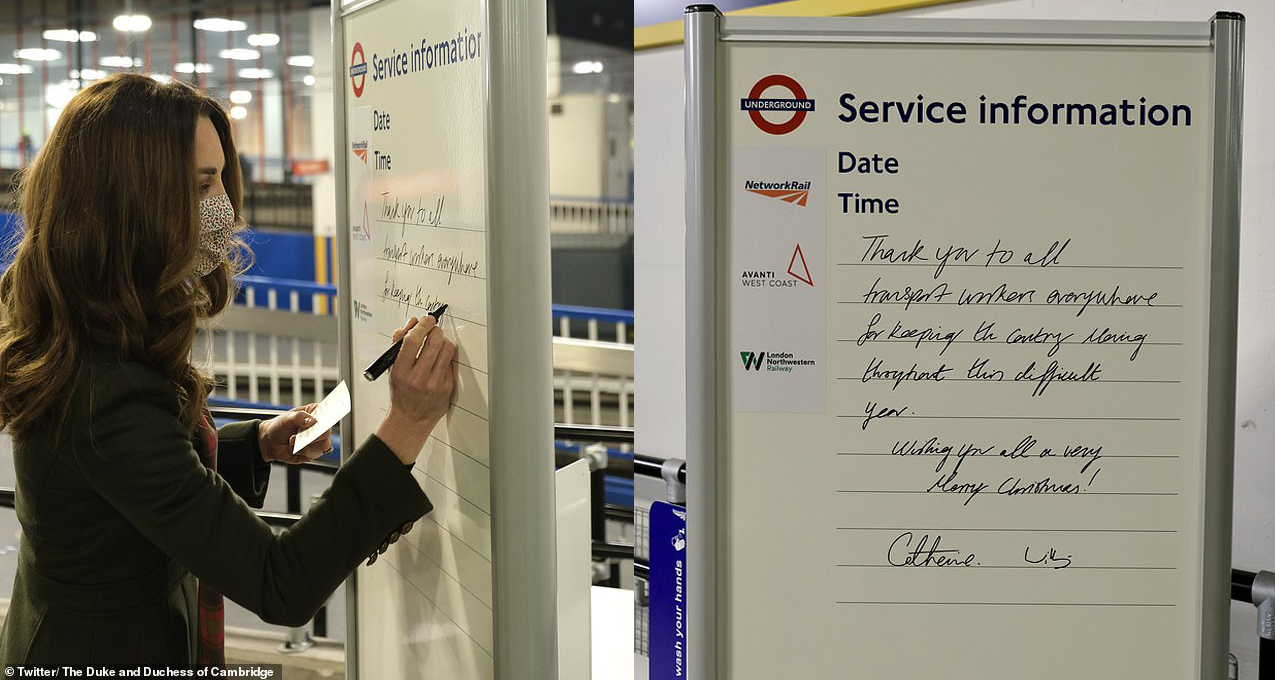 Service information
Date
Time
NetworkRail
Thank you to all
transport workers everywhere
for keeping the country
© Twitter/ The Duke and Duchess of Cambridge
UNDERGROUND
Service information
Date
Time
NetworkRail
AVANTI
WEST COAST
London
Northwestern
Railway
Thank you to all
transport workers everywhere
for keeping the country moving
throughout this difficult
year.
Wishing you all a very
Merry Christmas!
Catherine.
wash your hands